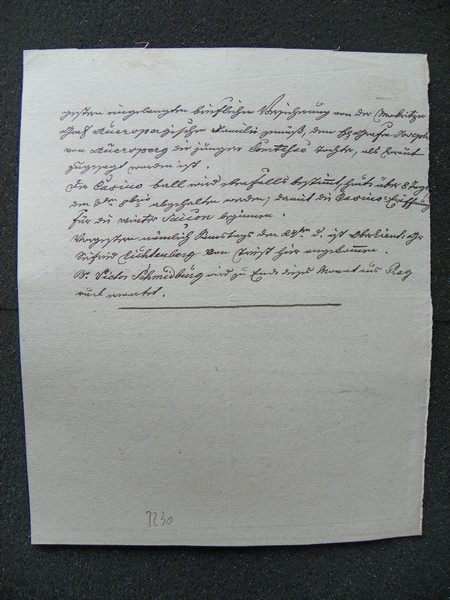 gestern eingelangten brieflichen Versicherung von der Mokritzer
Graf Auerspergischen Familie gemäß, dem Grafen Joseph
von Auersperg die jüngere Tochter, als Braut
zugesagt worden ist.
Der Casino ball wird ebenfalls bestimmt heute über 8 Tage
den 9br abgehalten werden, damit die Casino-Eröffnung
für die winter Saison beginnen.
Vorgestern nämlich Samstags den d. ist Oberlieut.
Sifrid Lichtenberg von Triest hier angekommen.
B. Victor Schmidburg wird zu Ende dieses Monat aus Prag
erwartet.
7230